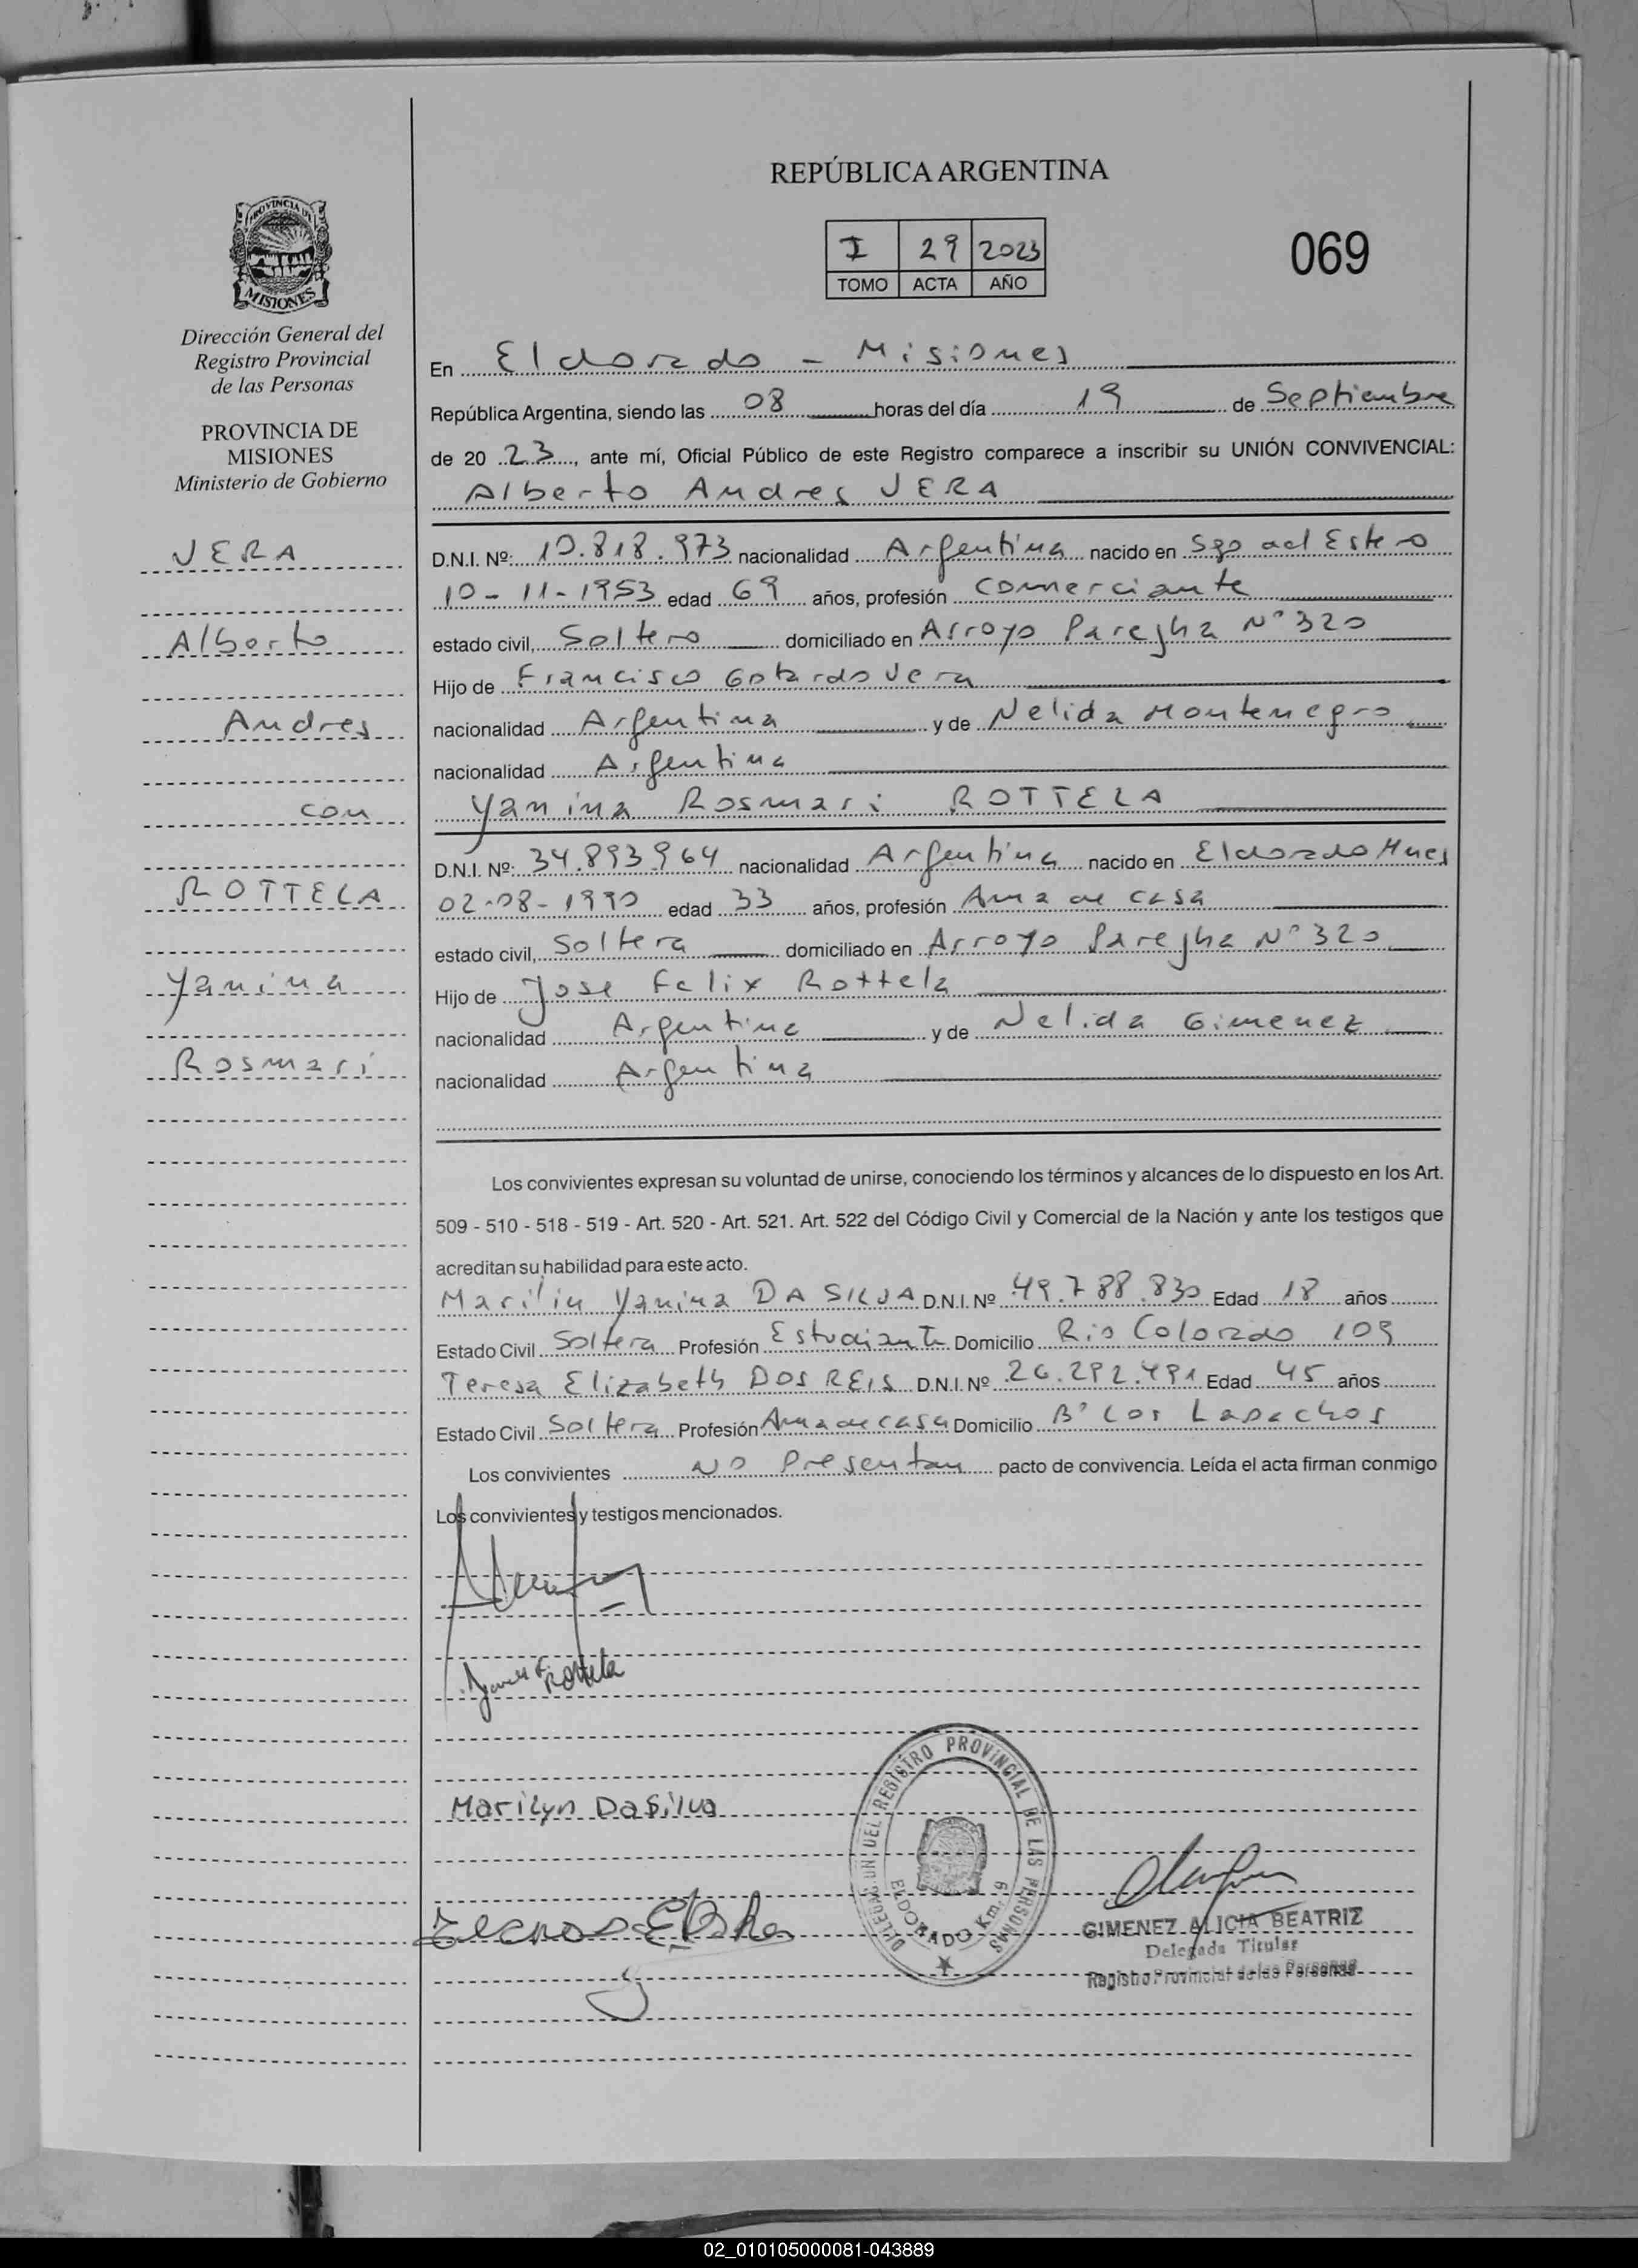 REPÚBLICA ARGENTINA
I 29 2023
TOMO ACTA AÑO
069
PROVINCIA DE
MISIONES
Dirección General del
Registro Provincial
de las Personas
PROVINCIA DE
MISIONES
Ministerio de Gobierno
VERA
Alberto
Andres
con
ROTTELA
Yanina
Rosmari
En Eldorado - Misiones
República Argentina, siendo las 08 horas del día 19 de Septiembre
de 20 23, ante mí, Oficial Público de este Registro comparece a inscribir su UNIÓN CONVIVENCIAL:
Alberto Andres VERA
D.N.I. Nº: 10.818.973 nacionalidad Argentina nacido en Sgo del Estero
10-11-1953 edad 69 años, profesión comerciante
estado civil, Soltero domiciliado en Arroyo Paregha N° 320
Hijo de Francisco Gotardo Vera
nacionalidad Argentina y de Nelida Montenegro
nacionalidad Argentina
Yanina Rosmari ROTTELA
D.N.I. Nº: 34.893.964 nacionalidad Argentina nacido en Eldorado Mnes
02-08-1990 edad 33 años, profesión Ama de casa
estado civil, Soltera domiciliado en Arroyo Paregha N° 320
Hijo de Jose Felix Rottela
nacionalidad Argentina y de Nelida Gimenez
nacionalidad Argentina
Los convivientes expresan su voluntad de unirse, conociendo los términos y alcances de lo dispuesto en los Art.
509 - 510 - 518 - 519 - Art. 520 - Art. 521. Art. 522 del Código Civil y Comercial de la Nación y ante los testigos que
acreditan su habilidad para este acto.
Marilin Yanina DA SILVA D.N.I. Nº 49.788.830 Edad 18 años
Estado Civil Soltera Profesión Estudiante Domicilio Rio Colorado 109
Teresa Elizabeth DOS REIS D.N.I. Nº 26.292.491 Edad 45 años
Estado Civil Soltera Profesión Ama de casa Domicilio B° Los Lapachos
Los convivientes No Presentan pacto de convivencia. Leída el acta firman conmigo
Los convivientes y testigos mencionados.
Rottela
Marilyn DaSilva
DELEGACIÓN DEL REGISTRO PROVINCIAL DE LAS PERSONAS
ELDORADO Km. 9
GIMENEZ ALICIA BEATRIZ
Delegada Titular
Registro Provincial de las Personas
02_010105000081-043889